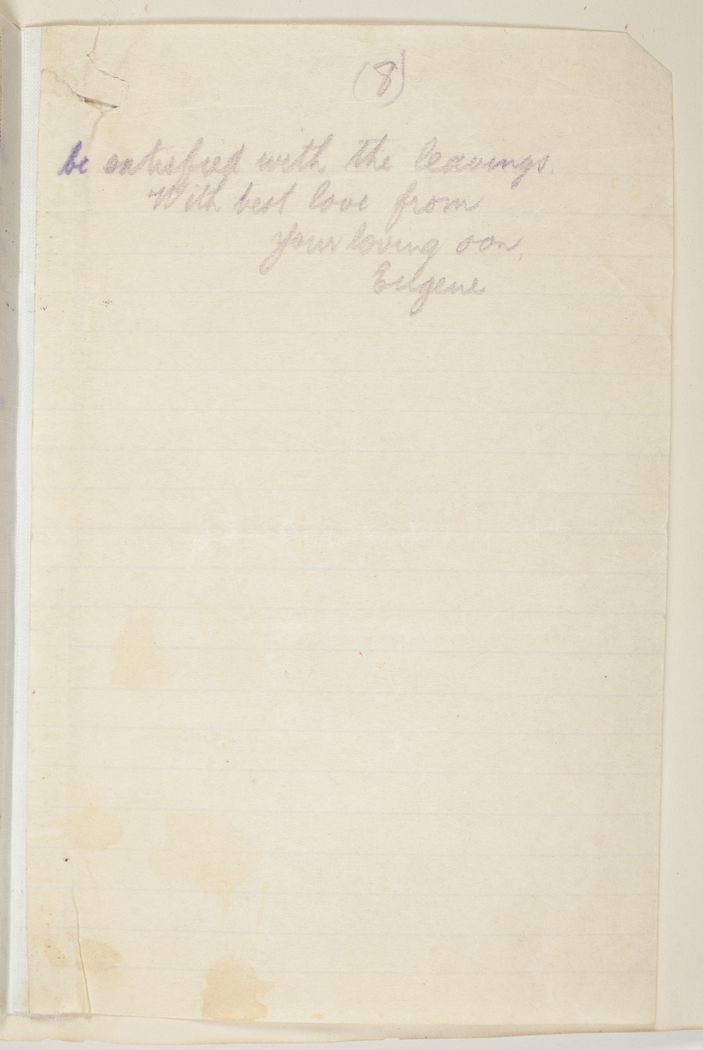 (8)
be satisfied with the leavings.
With best love from
your loving son,
Eugene